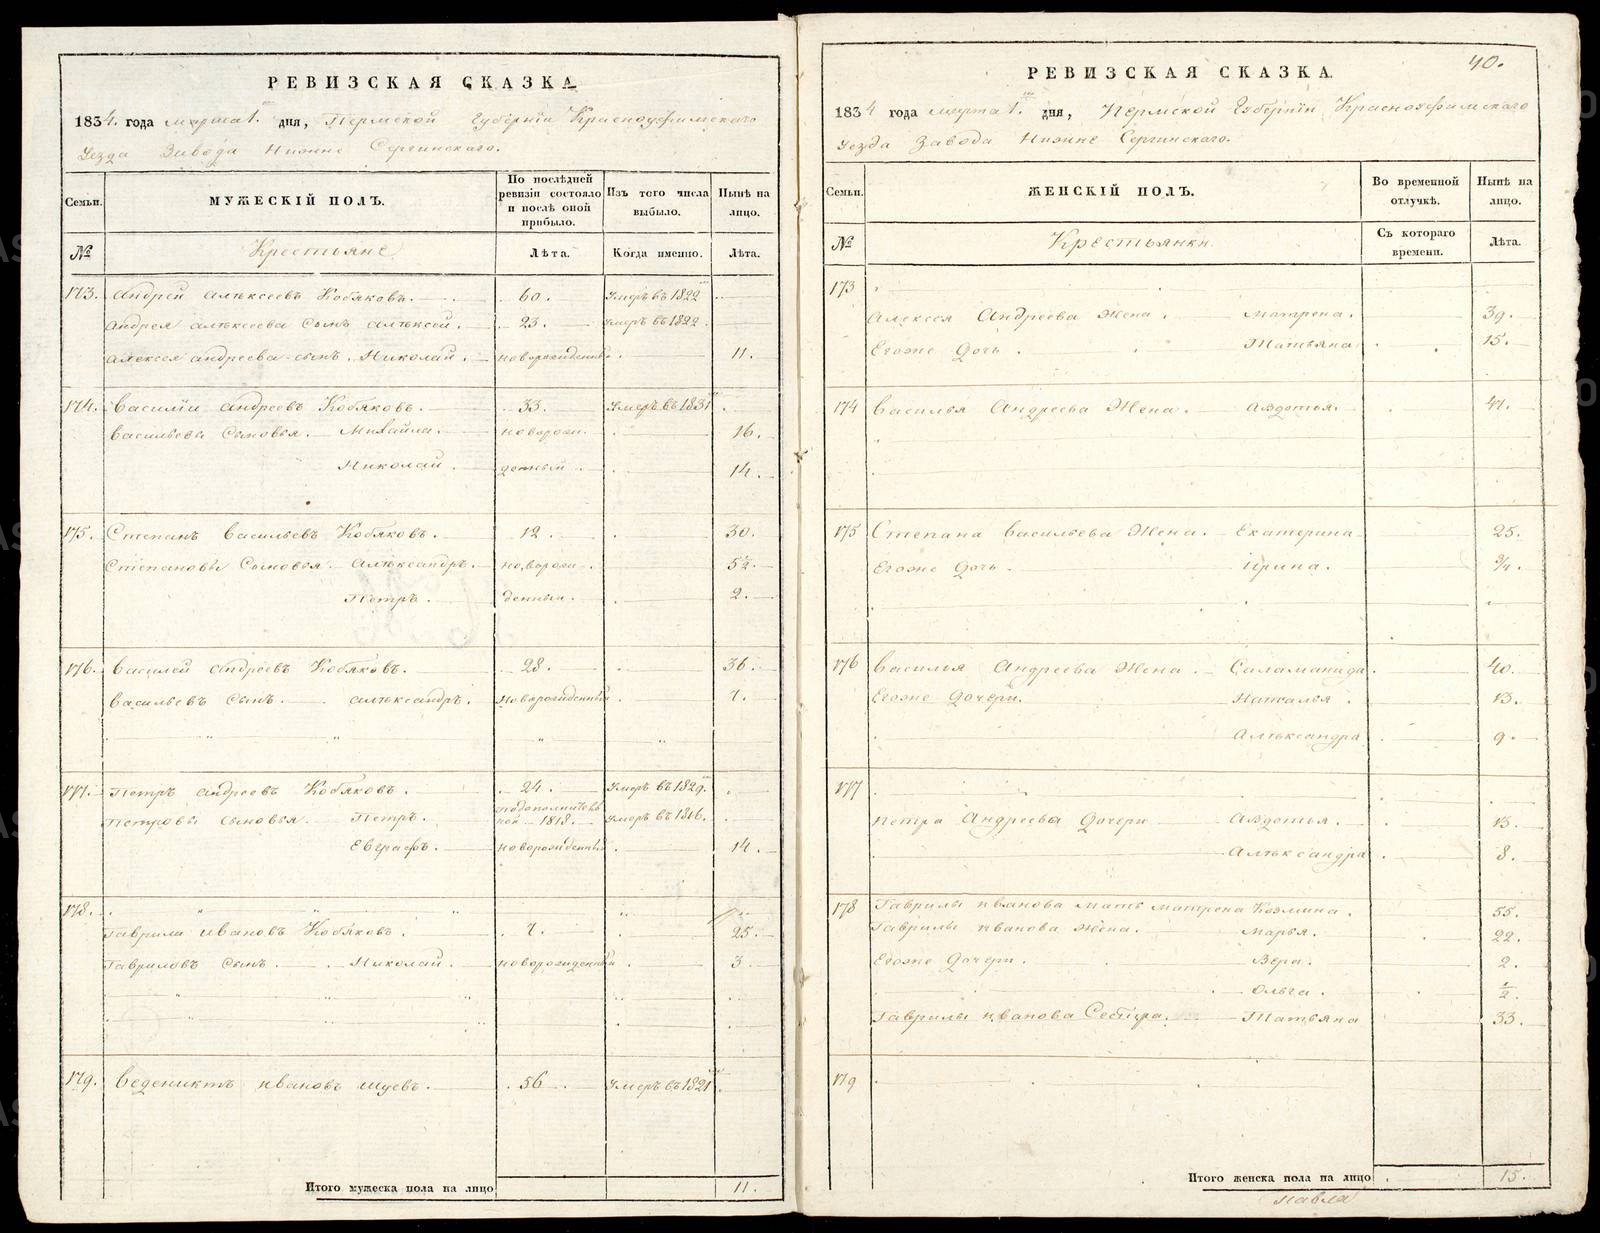 РЕВИЗСКАЯ СКАЗКА
1834. года марта 1. дня, Пермской Губернии Красноуфимского
уезда Завода Нижне Сергинскаго.
Семьи.
МУЖЕСКІЙ ПОЛЪ.
По послѣдней ревизіи состояло и послѣ оной прибыло.
Изъ того числа выбыло.
Нынѣ на лицо.
№
Крестьяне
Лѣта.
Когда именно.
Лѣта.
173. Андрей Алексеевъ Кобяковъ. 60. Умеръ въ 1822
Андрея Алексеева сынъ Алексей. 23. Умеръ въ 1822.
Алексея Андреева сынъ Николай. новорожденный. 11.
174. Василий Андреевъ Кобяковъ. 33. Умеръ въ 1831
Васильевы Сыновья. Михайла. новорож- 16.
Николай. денный. 14.
175. Степанъ Васильевъ Кобяковъ. 12. 30.
Степановы Сыновья. Александръ. новорож- 5½.
Петръ. денныи. 2.
176. Василей Андреевъ Кобяковъ. 28. 36.
Васильевъ Сынъ. Александръ. новорожденный. 7.
177. Петръ Андреевъ Кобяковъ. 24. Умеръ въ 1829.
Петровы сыновья. Петръ. 1818. Умеръ въ 1816.
Евграфъ. новорожденный. 14.
178.
Гаврила Ивановъ Кобяковъ. 7. 25.
Гавриловъ Сынъ. Николай. новорожденный. 3.
179. Веденикть Ивановъ Шуевъ. 56. Умеръ въ 1821
Итого мужеска пола на лицо 11.
40.
РЕВИЗСКАЯ СКАЗКА.
1834 года марта 1. дня, Пермской Губернии Красноуфимскаго
уезда Завода Нижне Сергинскаго.
Семьи.
ЖЕНСКІЙ ПОЛЪ.
Во временной отлучкѣ.
Нынѣ на лицо.
№
Крестьянки
Съ котораго времени.
Лѣта.
173
Алексея Андреева Жена. Матрена. 39.
Егоже Дочь. Татьяна. 15.
174 Василья Андреева Жена. Авдотья. 41.
175 Степана Васильева Жена. Екатерина 25.
Егоже Дочь. Ирина. ¾.
176 Василья Андреева Жена. Саламанида. 40.
Егоже Дочери. Наталья. 13.
Александра 9.
177
Петра Андреева Дочери Авдотья. 13.
Александра 8.
178 Гаврилы Иванова мать Матрена Козмина. 55.
Гаврилы Иванова Жена. Марья. 22.
Егоже Дочери. Вера. 2.
Ольга. ½.
Гаврилы Иванова Сестра. Татьяна 33.
179
Итого женска пола на лицо 15.
Павла